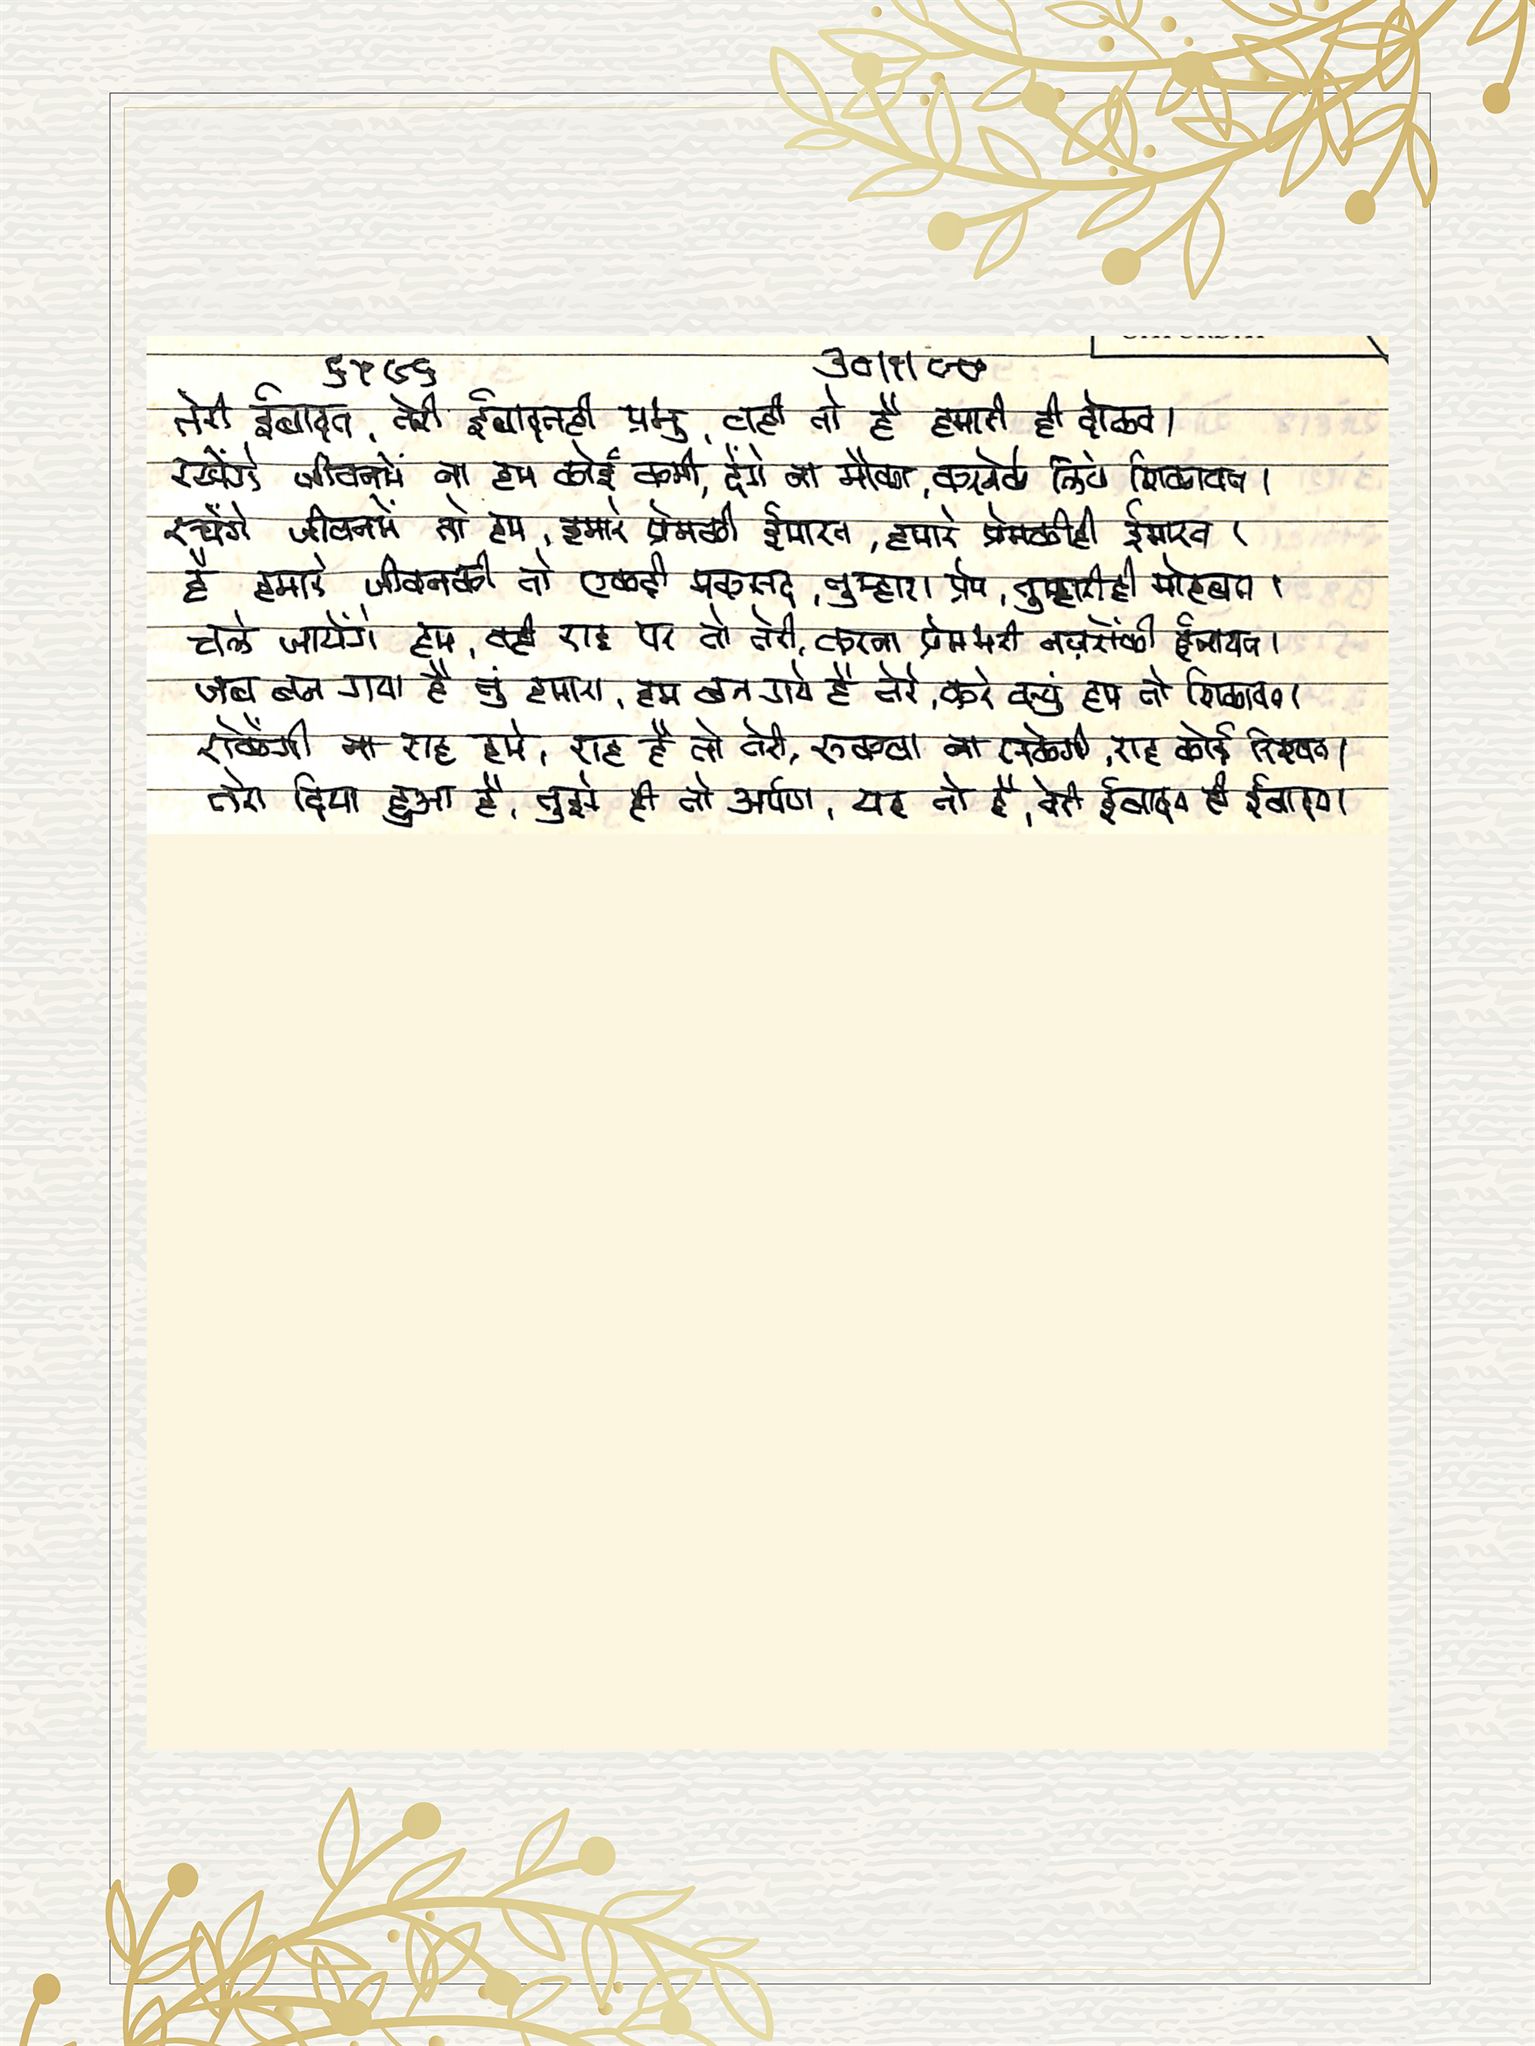 ३०|१|८७
तेरी ईबादत, तेरी ईबादतही प्रभु, वही तो है हमारी ही दोलत।
रखेंगे जीवनमें ना हम कोई कमी, देंगे ना मौका, करनेके लिये शिकायत।
रचेंगे जीवनमें तो हम, हमारे प्रेमकी ईमारत, हमारे प्रेमकीही ईमारत।
है हमारे जीवनकी तो एकही मकसद, तुम्हारा प्रेम, तुम्हारीही मोहबत।
चले जायेंगे हम, वही राह पर तो तेरी, करना प्रेमभरी नज़रोंकी ईनायत।
जब बन गया है तुं हमारा, हम बन गये है तेरे, करे क्युं हम तो शिकायत।
रोकेंगी ना राह हमे, राह है तो तेरी, रुकावा ना सकेगी, राह कोई
तेरा दिया हुआ है, तुझे ही तो अर्पण, यह तो है, तेरी ईबादत ही ईबादत।